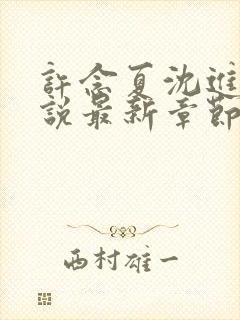 許念夏沈進
說最新章節
西村雄一